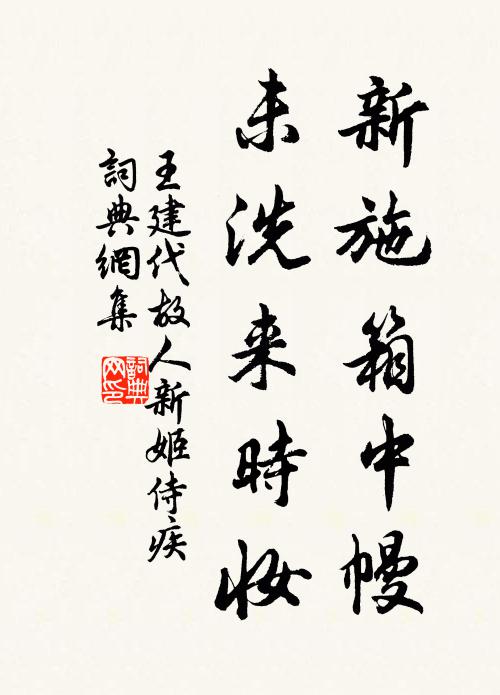 新施箱中幔
未洗来時妝
王建代故人新姬侍疾
詞典網集
詞典網印